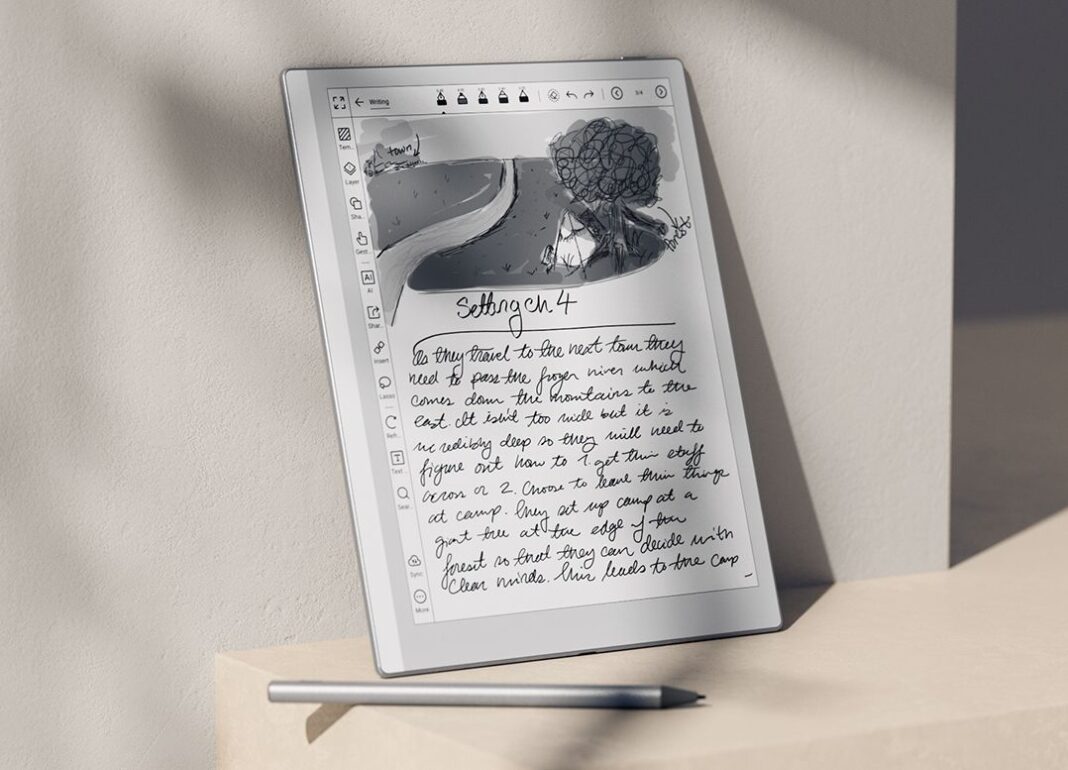 Writing
3/4
Tem...
Layer
Sha...
Gest...
AI
AI
Shar...
Insert
Lasso
Refr...
Text
Sear...
Sync
More
town
forest
Setting ch 4
As they travel to the next town they
need to pass the frozen river which
comes down the mountains to the
east. It isn't too wide but it is
incredibly deep so they will need to
figure out how to 1. get their stuff
across or 2. Choose to leave their things
at camp. They set up camp at a
giant tree at the edge of the
forest so that they can decide with
clear minds. This leads to the camp